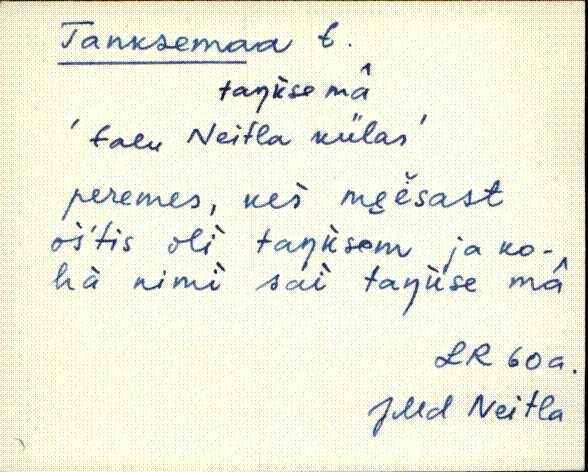 Tanksemaa t.
taŋ̀kse mâ
'talu Neitla külas'
peremes, kes̀ mēsast
oš́tis oli taŋ̀ksem ja ko-
hà nimì sai taŋ̀kse mâ
LR 60a.
JMd Neitla